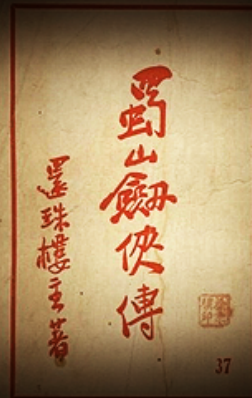 蜀山劔俠傳
還珠樓主著
37